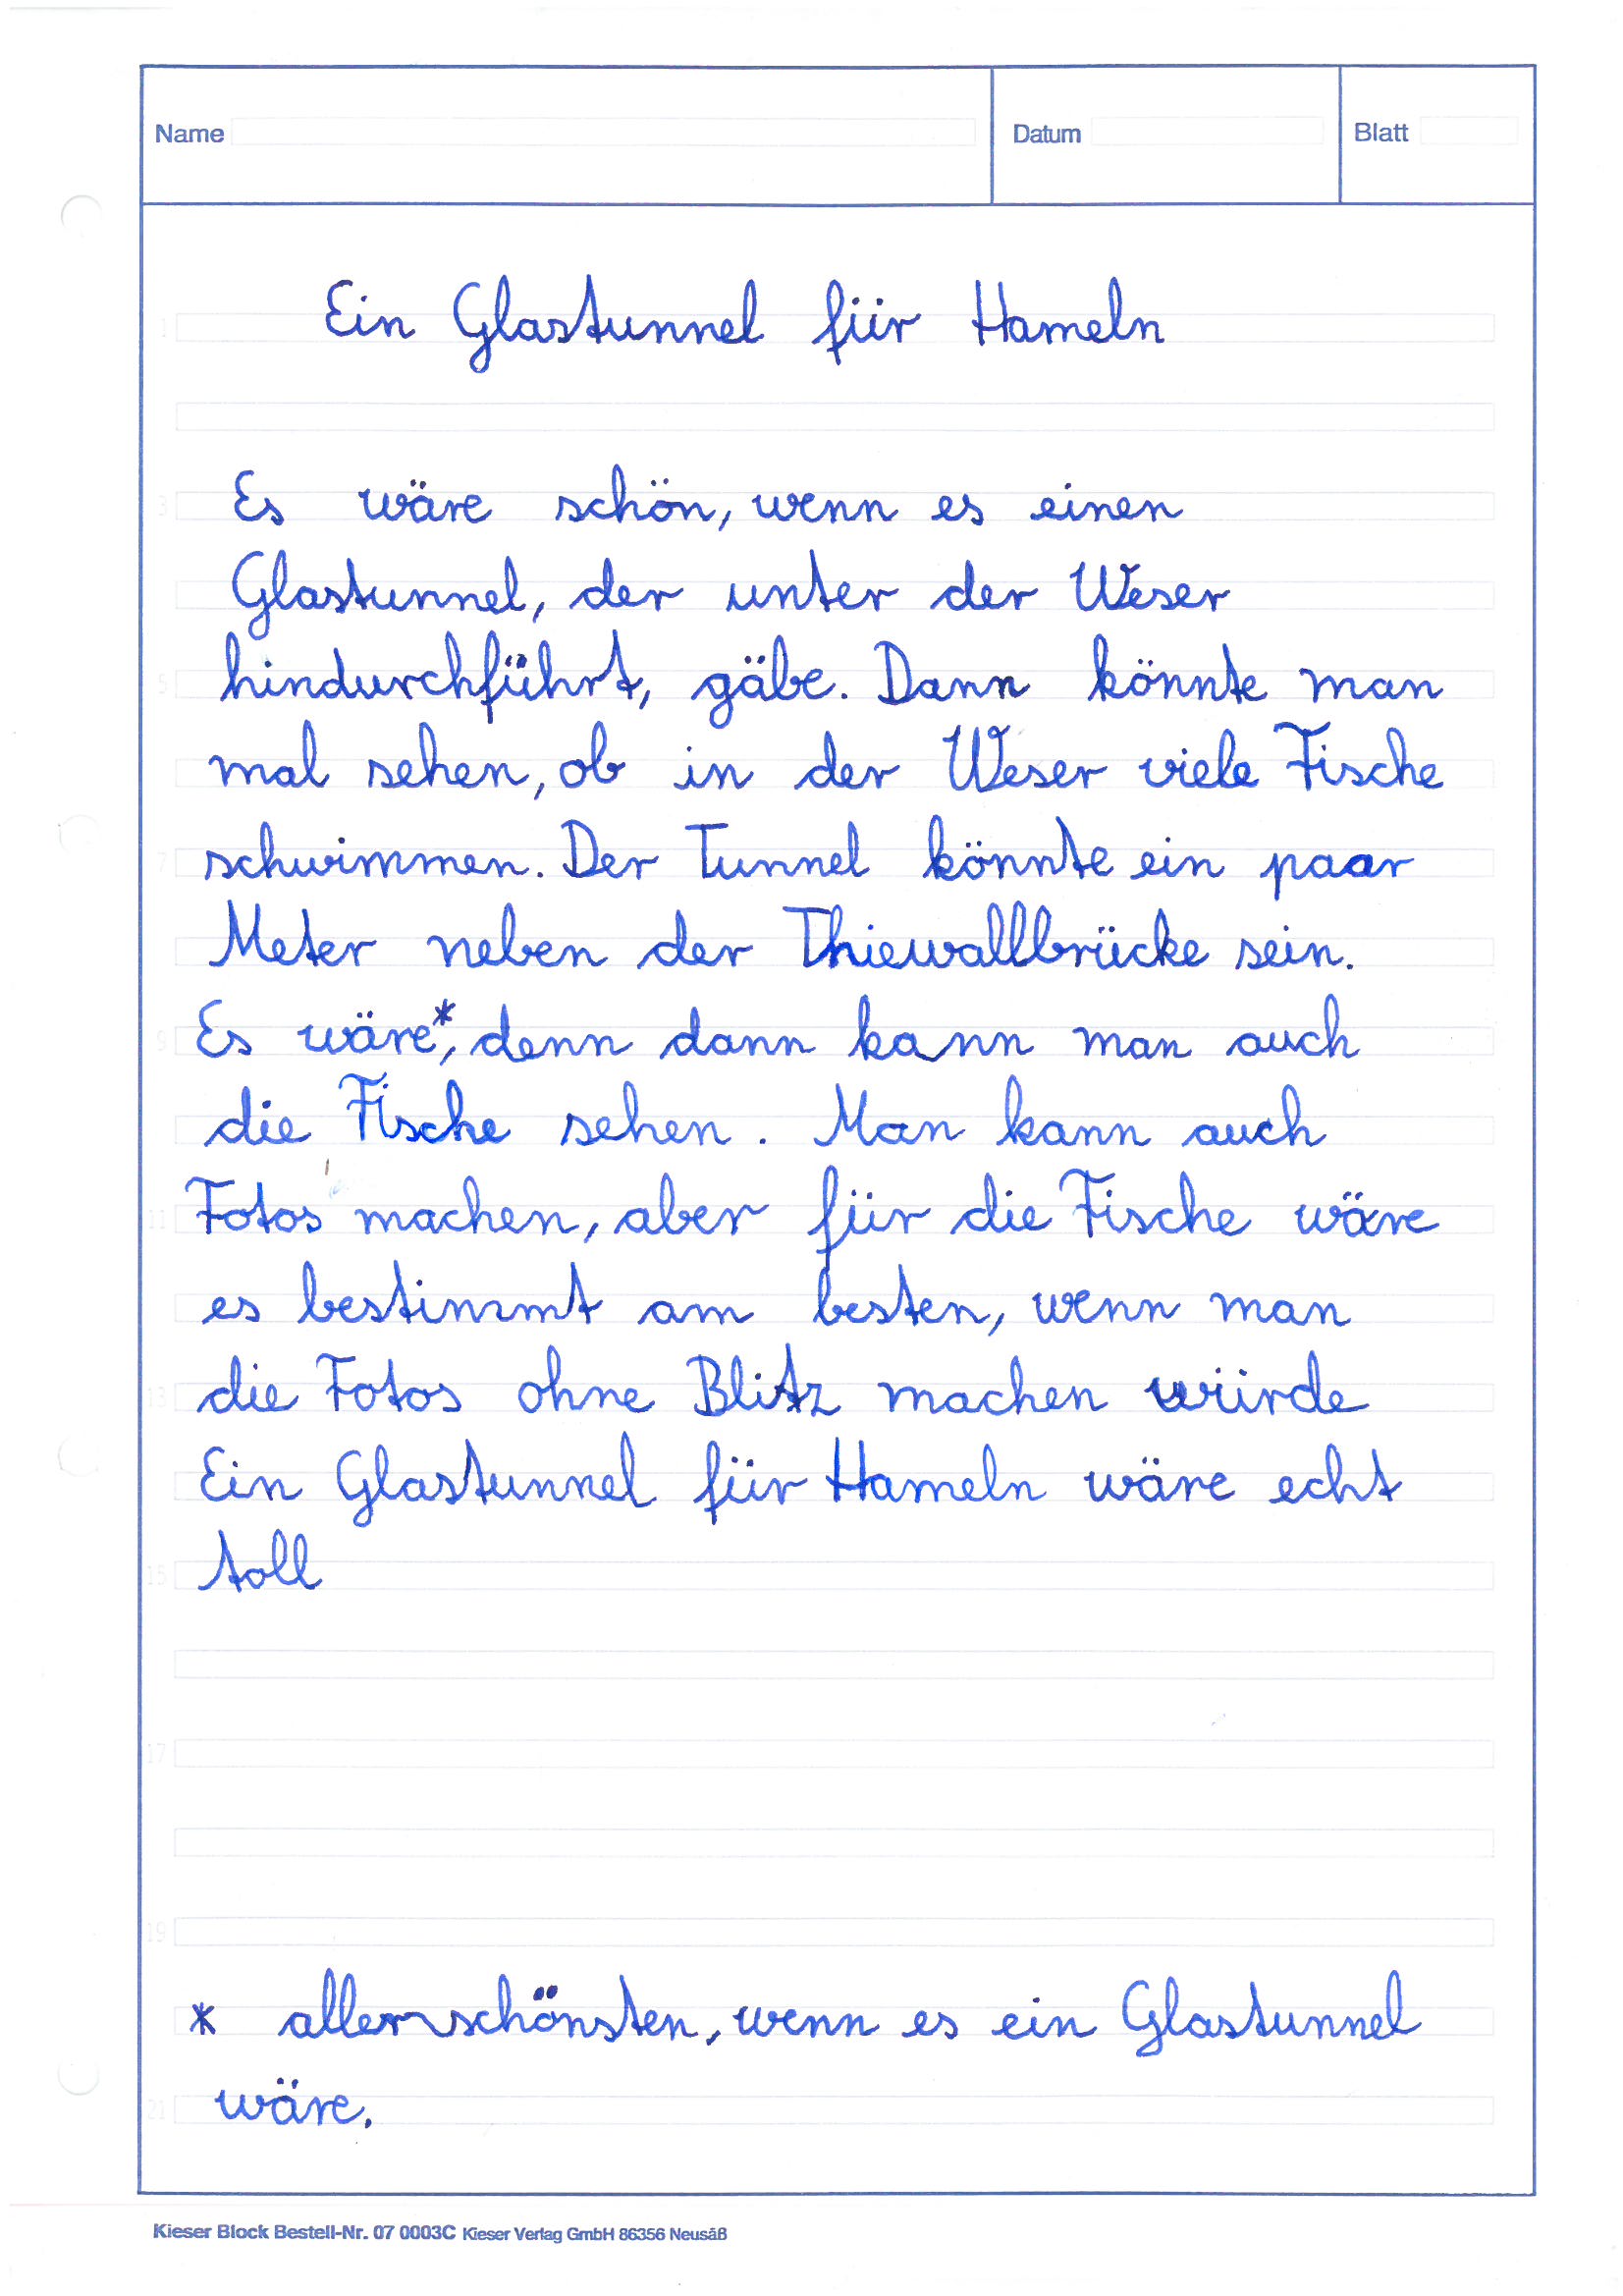 Name Datum Blatt
Ein Glastunnel für Hameln
Es wäre schön, wenn es einen
Glastunnel, der unter der Weser
hindurchführt, gäbe. Dann könnte man
mal sehen, ob in der Weser viele Fische
schwimmen. Der Tunnel könnte ein paar
Meter neben der Thiewallbrücke sein.
Es wäre*, denn dann kann man auch
die Fische sehen. Man kann auch
Fotos machen, aber für die Fische wäre
es bestimmt am besten, wenn man
die Fotos ohne Blitz machen würde
Ein Glastunnel für Hameln wäre echt
toll
* allerschönsten, wenn es ein Glastunnel
wäre.
Kieser Block Bestell-Nr. 07 0003C Kieser Verlag GmbH 86356 Neusäß